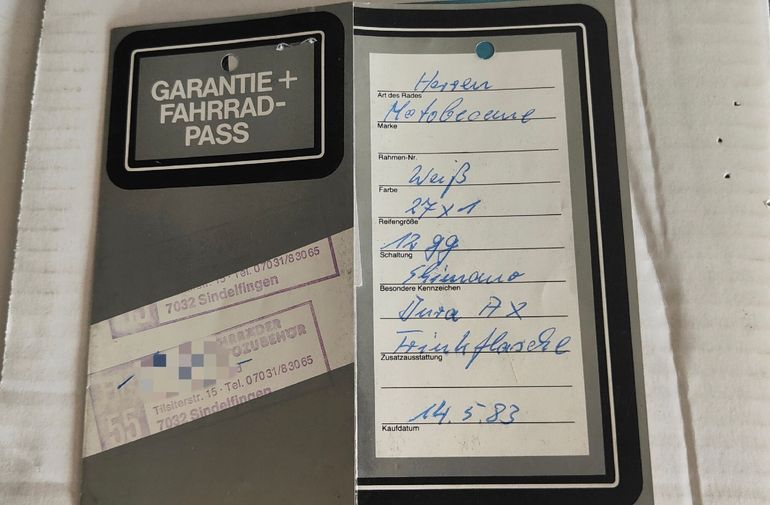 GARANTIE +
FAHRRAD-
PASS
15 · Tel. 07031/83065
7032 Sindelfingen
Tilsiterstr. 15 · Tel. 07031/83065
7032 Sindelfingen
55
Herren
Art des Rades
Motobecane
Marke
Rahmen-Nr.
Weiß
Farbe
27 x 1
Reifengröße
12 gg
Schaltung
Shimano
Besondere Kennzeichen
Dura AX
Trinkflasche
Zusatzausstattung
14.5.83
Kaufdatum